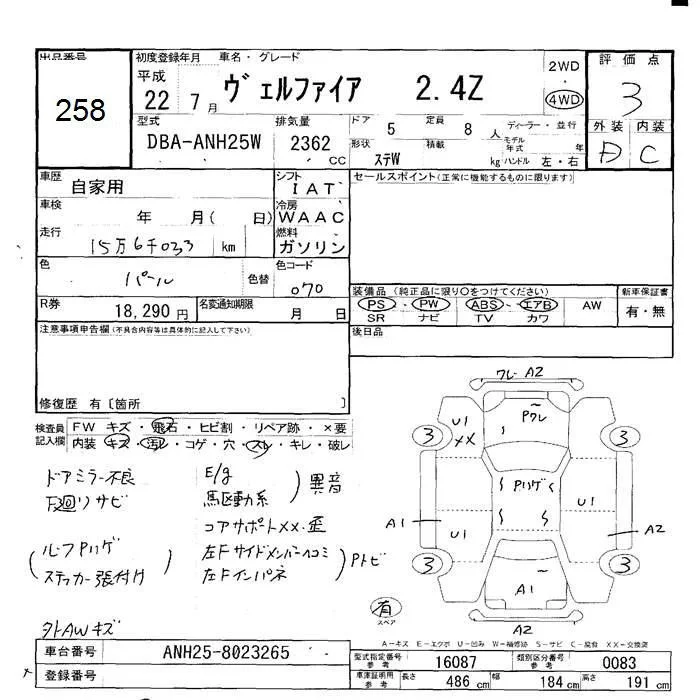 出品番号 258
初度登録年月 車名・グレード
平成 22 7月 ヴェルファイア 2.4Z
2WD ・ 4WD
評価点 3
外装 内装
D C
型式 排気量 ドア 5 定員 8 人 ディーラー・並行
DBA-ANH25W 2362 CC 形状 ステW 積載 kg モデル年式 年 ハンドル 左・右
車歴 自家用 シフト IAT
セールスポイント(正常に機能するものに限ります)
車検 年 月( 日) 冷房 WAAC
走行 15万6千033 km 燃料 ガソリン
色 パール 色替 色コード 070
装備品(純正品に限り○をつけてください) 新車保証書
PS・PW・ABS・エアB AW 有・無
SR ナビ TV カワ
R券 18,290円 名変通知期限 月 日
後日品
注意事項申告欄(不具合内容等は具体的に記入して下さい)
修復歴 有〔箇所 〕
検査員記入欄 FW キズ・飛石・ヒビ割・リペア跡・×要
内装 キズ・汚レ・コゲ・穴・スレ・キレ・破レ
ドアミラー不良
下廻りサビ
E/g
馬区動系 ) 異音
コアサポートXX・歪
左Fサイドメンバーヘコミ
左Fインパネ
Pトビ
ルーフPハゲ
ステッカー張付け
外AWキズ
ワレ A2
U1 XX
Pワレ
3 3
Pハゲ
U1
A1 U1 A2
3 3
A1
有 スペア
A2
A-キズ E-エクボ U-凹み W-補修跡 S-サビ C-腐食 XX-交換済
車台番号 ANH25-8023265
登録番号
型式指定番号 参考 16087 類別区分番号 参考 0083
車庫証明用 参考 長さ 486cm 幅 184cm 高さ 191cm